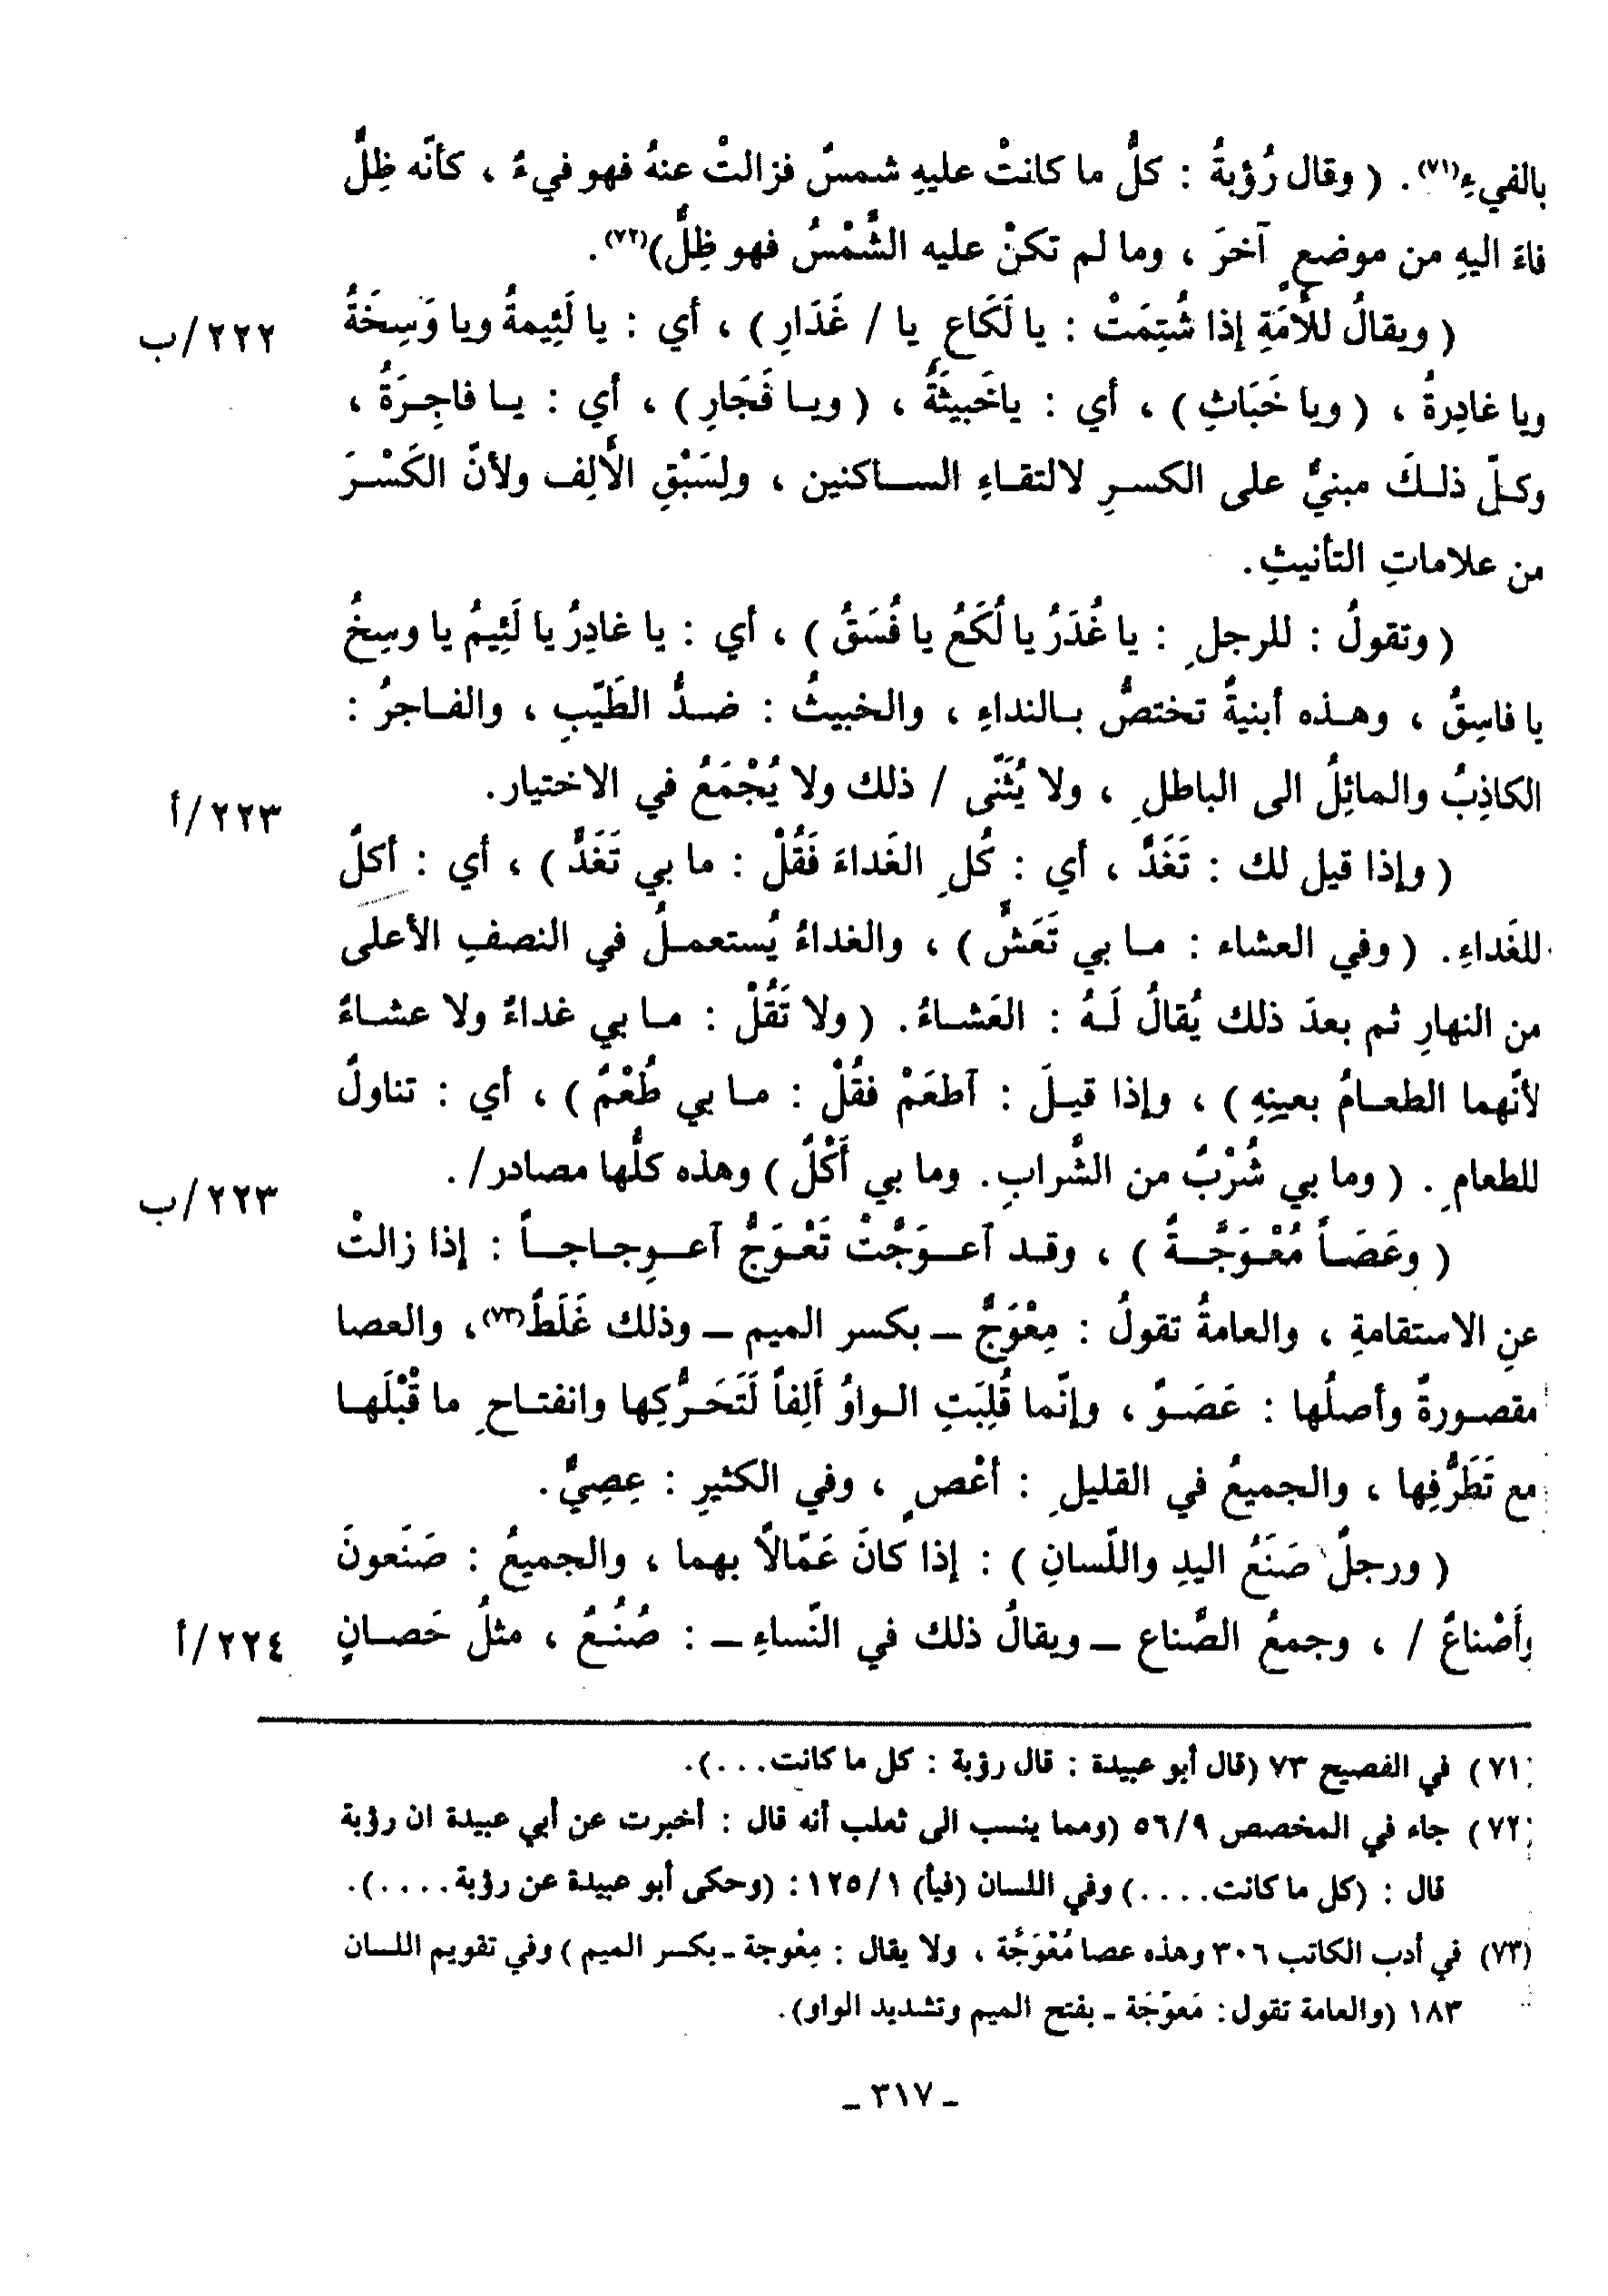 بالفيءِ(٧١). ( وقال رُؤبةُ : كلُّ ما كانتْ عليهِ شمسٌ فزالتْ عنهُ فهو فيءٌ ، كأنّه ظِلٌّ
فاءَ اليهِ من موضعٍ آخرَ ، وما لم تكنْ عليه الشَّمْسُ فهو ظِلٌّ)(٧٢).
( ويقالُ للأَمَةِ إذا شُتِمَتْ : يا لَكَاعِ يا / غَدَارِ ) ، أي : يا لَئِيمةُ ويا وَسِخَةُ
٢٢٢/ب
ويا غادِرةُ ، ( ويا خَبَاثِ ) ، أي : ياخَبيثَةُ ، ( ويا فَجَارِ ) ، أي : يا فاجِرَةُ ،
وكلّ ذلكَ مبنيٌّ على الكسرِ لالتقاءِ الساكنين ، ولِسَبْقِ الأَلِف ولأنَّ الكَسْرَ
من علاماتِ التأنيثِ.
( وتقولُ : للرجلِ : يا غُدَرُ يا لُكَعُ يا فُسَقُ ) ، أي : يا غادِرُ يا لَئِيمُ يا وسِخُ
يا فاسِقُ ، وهذه أبنيةٌ تختصُّ بالنداءِ ، والخبيثُ : ضدُّ الطَيّبِ ، والفاجرُ :
الكاذِبُ والمائِلُ الى الباطلِ ، ولا يُثَنّى / ذلك ولا يُجْمَعُ في الاختيار.
٢٢٣/أ
( وإذا قيل لك : تَغَدَّ ، أي : كُلِ الغَداءَ فَقُلْ : ما بي تَغَدٍّ ) ، أي : أكلٌ
للغَداءِ. ( وفي العشاء : ما بي تَعَشٍّ ) ، والغداءُ يُستعملُ في النصفِ الأعلى
من النهارِ ثم بعدَ ذلك يُقالُ لَهُ : العَشاءُ. ( ولا تَقُلْ : ما بي غداءٌ ولا عشاءٌ
لأنَّهما الطعامُ بعينِهِ ) ، وإذا قيلَ : آطعَمْ فقُلْ : ما بي طُعْمٌ ) ، أي : تناولٌ
للطعامِ. ( وما بي شُرْبٌ من الشَّرابِ. وما بي أَكْلٌ ) وهذه كلُّها مصادر/.
٢٢٣/ب
( وعَصَاً مُعْوَجَّةٌ ) ، وقد آعوَجَّتْ تَعْوَجُّ آعوِجاجاً : إذا زالتْ
عنِ الاستقامةِ ، والعامةُ تقولُ : مِعْوَجٌّ – بكسر الميم – وذلك غَلَطٌ(٧٣)، والعصا
مقصورةٌ وأصلُها : عَصَوٌ ، وإنّما قُلِبَتِ الواوُ أَلِفاً لَتَحَرُّكِها وانفتاحِ ما قَبْلَها
مع تَطَرُّفِها ، والجميعُ في القليلِ : أعْصٍ ، وفي الكثيرِ : عِصِيٌّ.
( ورجلٌ صَنَعُ اليدِ واللّسانِ ) : إذا كانَ عَمّالاً بهما ، والجميعُ : صَنَعونَ
وأَصْناعٌ / ، وجمعُ الصَّناع – ويقالُ ذلك في النّساءِ – : صُنُعٌ ، مثلُ حَصانٍ
٢٢٤/أ
(٧١) في الفصيح ٧٣ (قال أبو عبيدة : قال رؤبة : كل ما كانت...).
(٧٢) جاء في المخصص ٥٦/٩ (ومما ينسب الى ثعلب أنه قال : أخبرت عن أبي عبيدة ان رؤبة
قال : (كل ما كانت....) وفي اللسان (فيأ) ١٢٥/١ : (وحكى أبو عبيدة عن رؤبة....).
(٧٣) في أدب الكاتب ٣٠٦ وهذه عصا مُعْوَجَّة ، ولا يقال : مِعْوجة - بكسر الميم ) وفي تقويم اللسان
١٨٣ (والعامة تقول: مَعوّجَة - بفتح الميم وتشديد الواو).
- ٣١٧ -